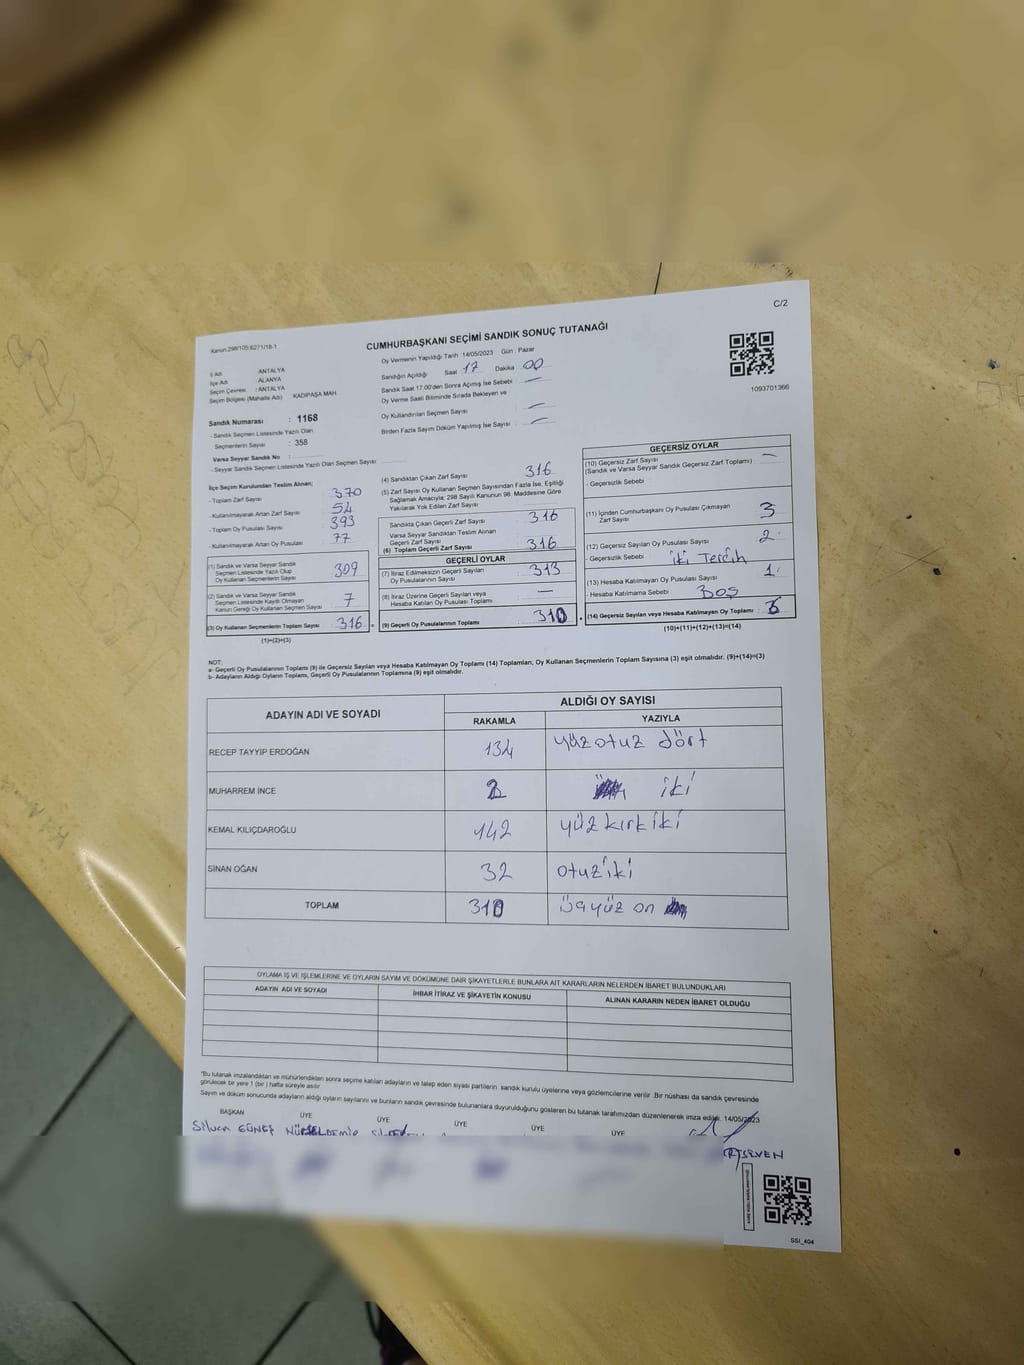 C/2
Kanun:298/105;6271/18-1
CUMHURBAŞKANI SEÇİMİ SANDIK SONUÇ TUTANAĞI
İl Adı : ANTALYA
İlçe Adı : ALANYA
Seçim Çevresi : ANTALYA
Seçim Bölgesi (Mahalle Adı) KADIPAŞA MAH
Sandık Numarası : 1168
- Sandık Seçmen Listesinde Yazılı Olan
Seçmenlerin Sayısı : 358
Varsa Seyyar Sandık No :
- Seyyar Sandık Seçmen Listesinde Yazılı Olan Seçmen Sayısı:
Oy Vermenin Yapıldığı Tarih :14/05/2023 Gün : Pazar
Sandığın Açıldığı Saat 17 Dakika 00
Sandık Saat 17:00'den Sonra Açılmış İse Sebebi —
Oy Verme Saati Bitiminde Sırada Bekleyen ve
Oy Kullandırılan Seçmen Sayısı —
Birden Fazla Sayım Döküm Yapılmış İse Sayısı —
1093701366
İlçe Seçim Kurulundan Teslim Alınan;
- Toplam Zarf Sayısı 370
- Kullanılmayarak Artan Zarf Sayısı 54
- Toplam Oy Pusulası Sayısı 393
- Kullanılmayarak Artan Oy Pusulası 77
(1) Sandık ve Varsa Seyyar Sandık
Seçmen Listesinde Yazılı Olup
Oy Kullanan Seçmenlerin Sayısı 309
(2) Sandık ve Varsa Seyyar Sandık
Seçmen Listesinde Kayıtlı Olmayan
Kanun Gereği Oy Kullanan Seçmen Sayısı 7
(3) Oy Kullanan Seçmenlerin Toplam Sayısı 316 =
(1)+(2)=(3)
(4) Sandıktan Çıkan Zarf Sayısı 316
(5) Zarf Sayısı Oy Kullanan Seçmen Sayısından Fazla İse, Eşitliği
Sağlamak Amacıyla; 298 Sayılı Kanunun 98. Maddesine Göre
Yakılarak Yok Edilen Zarf Sayısı
Sandıkta Çıkan Geçerli Zarf Sayısı 316
Varsa Seyyar Sandıktan Teslim Alınan
Geçerli Zarf Sayısı
(6) Toplam Geçerli Zarf Sayısı 316
GEÇERLİ OYLAR
(7) İtiraz Edilmeksizin Geçerli Sayılan
Oy Pusulasının Sayısı 313
(8) İtiraz Üzerine Geçerli Sayılan veya
Hesaba Katılan Oy Pusulası Toplamı —
(9) Geçerli Oy Pusulalarının Toplamı 310 +
GEÇERSİZ OYLAR
(10) Geçersiz Zarf Sayısı —
(Sandık ve Varsa Seyyar Sandık Geçersiz Zarf Toplamı)
- Geçersizlik Sebebi
(11) İçinden Cumhurbaşkanı Oy Pusulası Çıkmayan
Zarf Sayısı 3
(12) Geçersiz Sayılan Oy Pusulası Sayısı 2
- Geçersizlik Sebebi iki Tercih
(13) Hesaba Katılmayan Oy Pusulası Sayısı 1
- Hesaba Katılmama Sebebi Boş
(14) Geçersiz Sayılan veya Hesaba Katılmayan Oy Toplamı
(10)+(11)+(12)+(13)=(14)
NOT:
a- Geçerli Oy Pusulalarının Toplamı (9) ile Geçersiz Sayılan veya Hesaba Katılmayan Oy Toplamı (14) Toplamları, Oy Kullanan Seçmenlerin Toplam Sayısına (3) eşit olmalıdır. (9)+(14)=(3)
b- Adayların Aldığı Oyların Toplamı, Geçerli Oy Pusulalarının Toplamına (9) eşit olmalıdır.
ADAYIN ADI VE SOYADI ALDIĞI OY SAYISI
RAKAMLA YAZIYLA
RECEP TAYYIP ERDOĞAN 134 yüz otuz dört
MUHARREM İNCE 2 iki
KEMAL KILIÇDAROĞLU 142 yüz kırk iki
SİNAN OĞAN 32 otuz iki
TOPLAM 310 üçyüz on
OYLAMA İŞ VE İŞLEMLERİNE VE OYLARIN SAYIM VE DÖKÜMÜNE DAİR ŞİKAYETLERLE BUNLARA AİT KARARLARIN NELERDEN İBARET BULUNDUKLARI
ADAYIN ADI VE SOYADI İHBAR İTİRAZ VE ŞİKAYETİN KONUSU ALINAN KARARIN NEDEN İBARET OLDUĞU
"Bu tutanak imzalandıktan ve mühürlendikten sonra seçime katılan adayların ve talep eden siyasi partilerin sandık kurulu üyelerine veya gözlemcilerine verilir .Bir nüshası da sandık çevresinde
görülecek bir yere 1 (bir ) hafta süreyle asılır
Sayım ve döküm sonucunda adayların aldığı oyların sayılarını ve bunların sandık çevresinde bulunanlara duyurulduğunu gösteren bu tutanak tarafımızdan düzenlenerek imza edildi. 14/05/2023
BAŞKAN ÜYE ÜYE ÜYE ÜYE ÜYE
Silvan GÜNEŞ
SSI_404